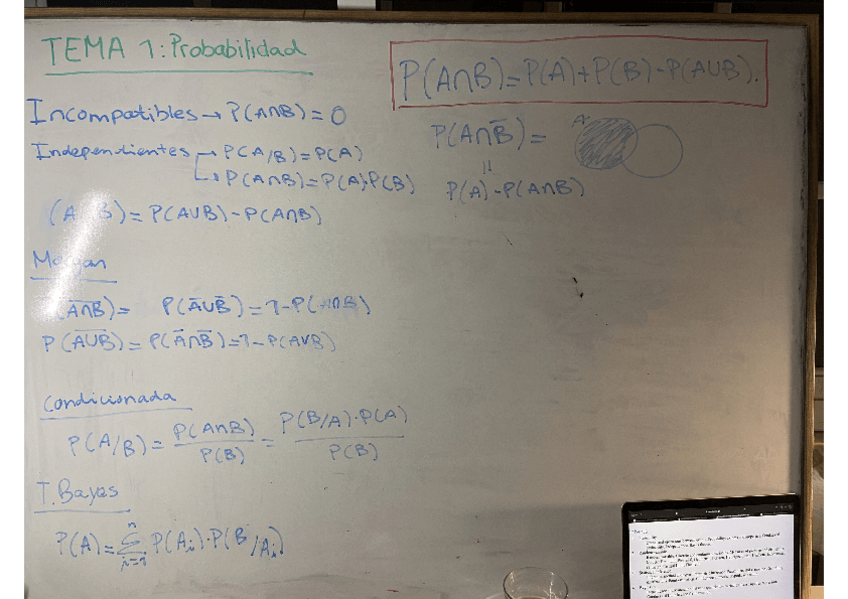 TEMA 1: Probabilidad
P(A∩B)=P(A)+P(B)-P(A∪B).
Incompatibles → P(A∩B)=0
Independientes → P(A/B)=P(A)
↳ P(A∩B)=P(A)·P(B)
P(A∩B̅)=
A
||
P(A)-P(A∩B)
(A B)=P(A∪B)-P(A∩B)
Morgan
(A̅∩̅B̅)= P(A̅∪B̅)=1-P(A∩B)
P(A̅∪̅B̅)=P(A̅∩B̅)=1-P(A∪B)
Condicionada
P(A/B)= P(A∩B)/P(B) = P(B/A)·P(A)/P(B)
T.Bayes
P(A)=∑ⁿᵢ₌₁ P(Aᵢ)·P(B/Aᵢ)